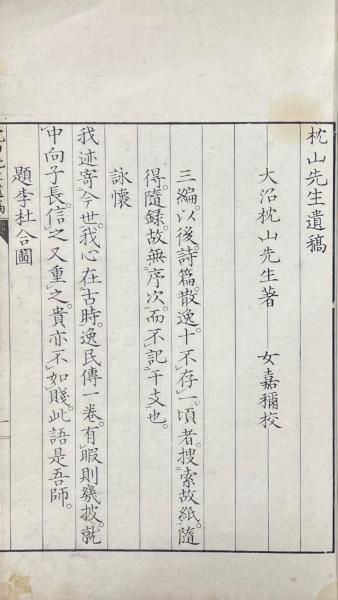 枕山先生遺稿
大沼枕山先生著 女嘉禰校
三編以後。詩篇散逸。十不存一。頃者搜索故紙。隨
得隨錄。故無序次。而不記干支也。
詠懷
我迹寄今世。我心在古時。逸民傳一卷。有暇則繙披。就
中向子長。信之又重之。貴亦不如賤。此語是吾師。
題李杜合圖